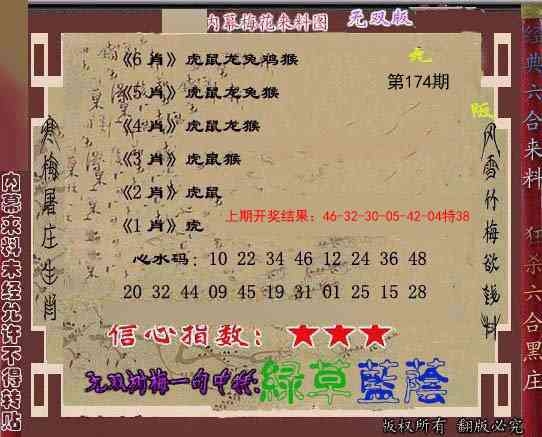 内幕梅花来料图 无双版
《6 肖》虎鼠龙兔鸡猴
第174期
《5 肖》虎鼠龙兔猴
《4 肖》虎鼠龙猴
《3 肖》虎鼠猴
《2 肖》虎鼠
上期开奖结果：46-32-30-05-42-04特38
《1 肖》虎
心水码：10 22 34 46 12 24 36 48
20 32 44 09 45 19 31 01 25 15 28
信心指数：★★★
一句中特:綠草藍蔭
版权所有 翻版必究
寒梅屠庄生肖
风雪竹梅欲钱料
内幕来料未经允许不得转贴
经典六合来料 狂杀六合黑庄